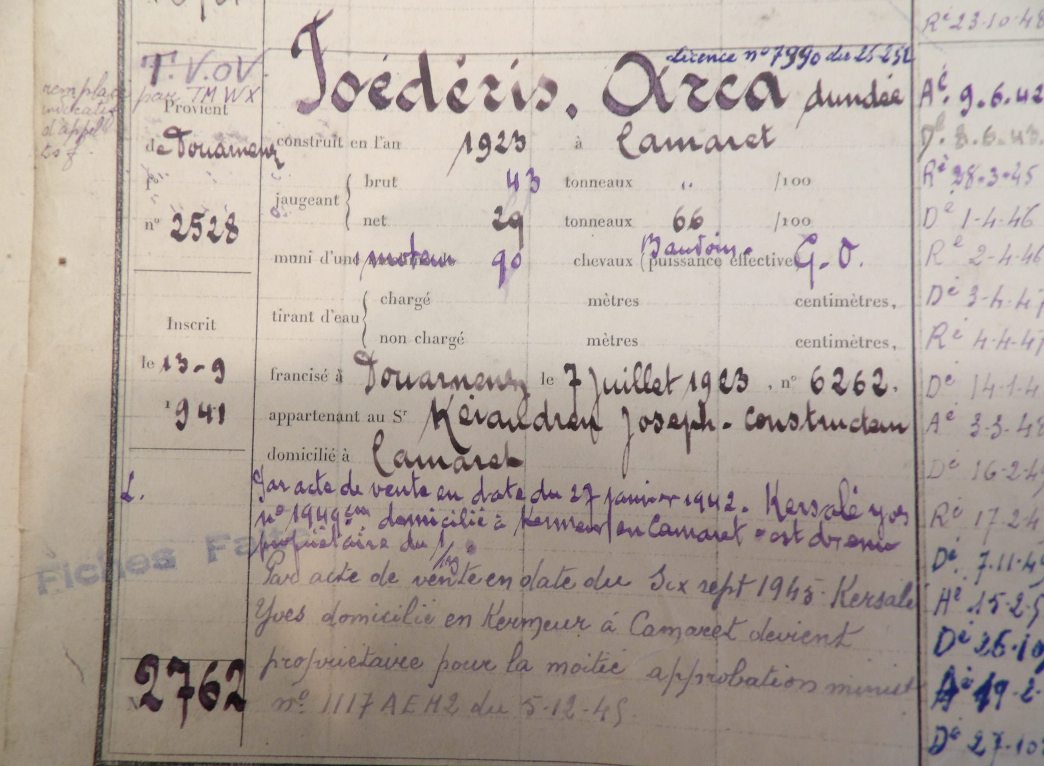 Ré 23-10-48
Licence n° 7990 du 25-2-52
T.V.O.V.
remplacé par TMWX
indicatif
d'appel
Foédéris. Arca dundée
Provient
de Douarnenez
construit en l'an 1923 à Camaret
jaugeant
brut 43 tonneaux " /100
n° 2528
net 29 tonneaux 66 /100
muni d'un moteur 90 chevaux (puissance effective Baudoin - G.O.
tirant d'eau
chargé mètres centimètres,
non chargé mètres centimètres,
Inscrit
le 13-9
1941
francisé à Douarnenez le 7 Juillet 1923, n° 6262,
appartenant au Sr Kéraudren Joseph - Constructeur
domicilié à Camaret
Par acte de vente en date du 27 janvier 1942. Kersalé yves
n° 1949 domicilié à Kermeur en Camaret - est devenu
propriétaire du
Fiches
Par acte de vente en date du Six sept 1945 Kersale
Yves domicilié en Kermeur à Camaret devient
propriétaire pour la moitié approbation minist
n° 1117 AEM2 du 5-12-45.
N° 2762
Aé. 9.6.42
Dé. 8.6.43
Ré 28-3-45
Dé 1-4-46
Ré 2-4-46
Dé 3-4-47
Ré 4-4-47
Dé 14-1-4
Aé 3-3-48
Dé 16-2-49
Ré 17-2-4
Dé. 7-11-49
Aé 15-2-5
Dé 26-10
Aé 19-2-
Dé 27-10